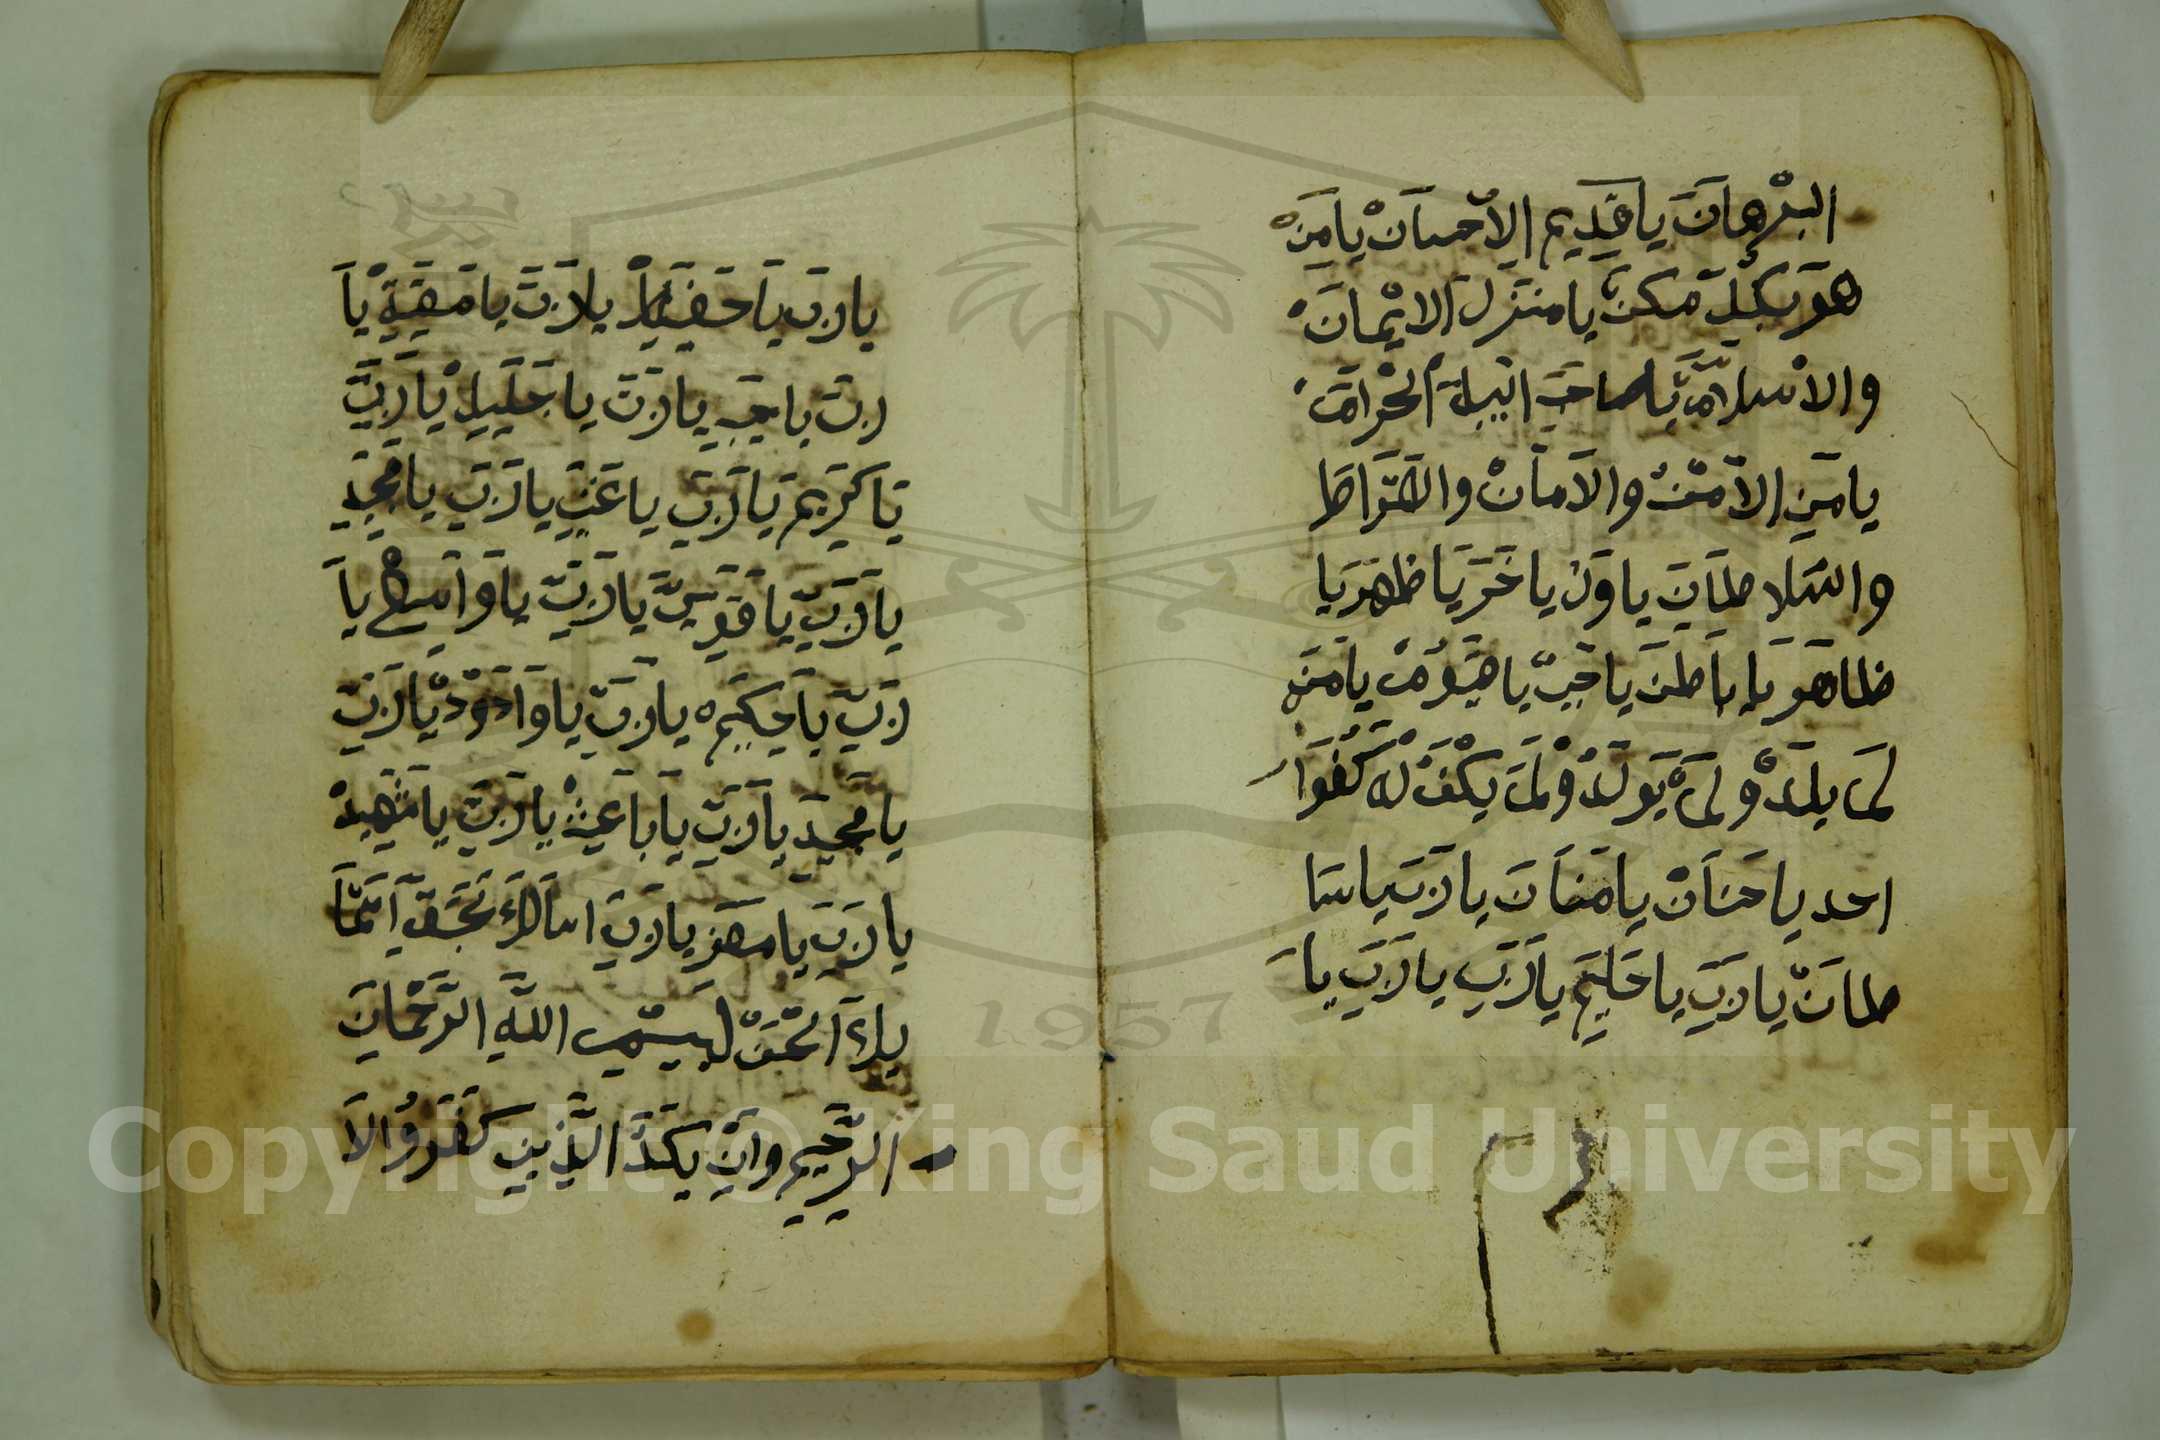 البرهان يا قديم الاحسان يا من
هو بكل مكن يا منزل الايمان
والاسلام يا صاحب البيت الحرام
يا من الامن والامان والاتراط
والسلا طان ياول يا خر يا ظهر يا
ظاهر يا باطن يا حي يا قيوم يا من
لم يلد ولم يولد ولم يكن له كفوا
احد يا حنان يا منان يا رب يا سا
طان يا رب يا حليم يا رب يا رب يا
يا رب يا حفيظ يا رب يا مقيت يا
رب يا جب يا رب يا جليل يا رب
يا كريم يا رب يا غني يا رب يا مجيد
يا رب يا قوي يا رب يا واسع يا
رب يا حكيم يا رب يا وادود يا رب
يا مجيد يا رب يا باعث يا رب يا شهيد
يا رب يا معز يا رب اسالك بحق اسما
يك الحسن بسم الله الرحمان
الرحيم وان يكد الذين كفروا لا
1957
Copyright © King Saud University